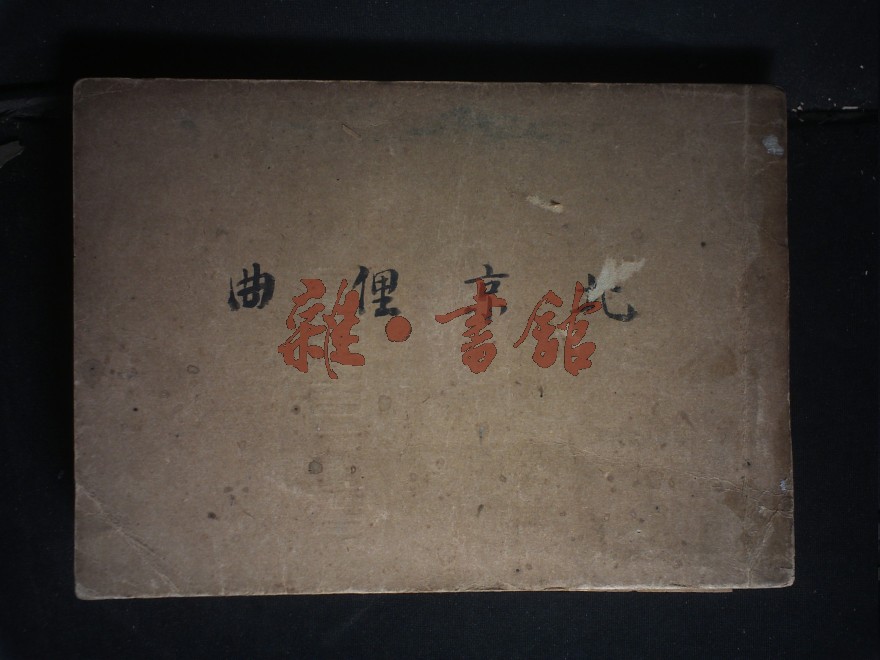 北京俚曲
雜·書館